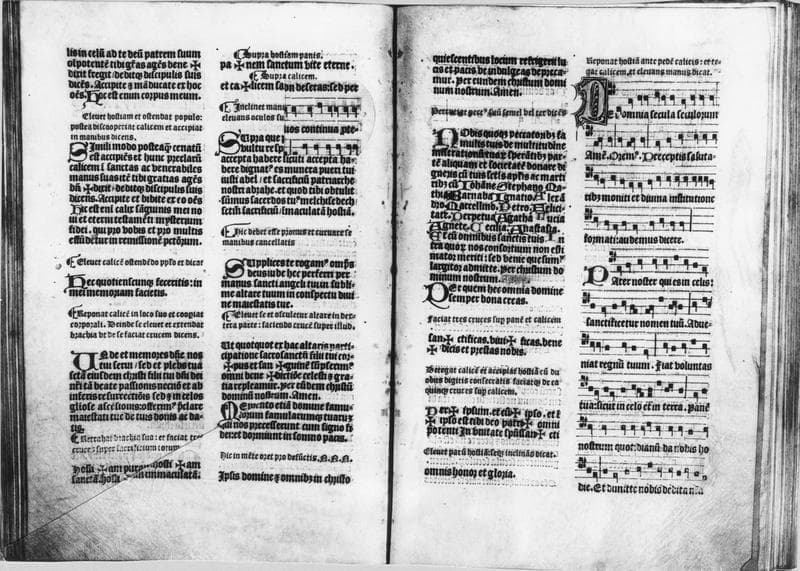 lis in celū ad te deū patrem suum
oīpotentē tibi grās agēs bene ✠
dixit fregit / deditq̨ discipulis suis
dicēs. Accipite ⁊ māducate ex hoc
oēs. Hoc est enim corpus meum.
Eleuet hostiam et ostendat populo:
postea discooperiat calicem et accipiat
in manibus dicens.
Simili modo posteaq̄ cenatū
est accipiēs et hunc preclarū
calicem ī sanctas ac venerabiles
manus suas itē tibi gratias agēs
bn̄ ✠ dixit / deditq̨ discipulis suis
dicens. Accipite et bibite ex eo oēs
Hic est enī calix sāguinis mei no
ui et eterni testamēti: mysterium
fidei. qui pro vobis et pro multis
effūdetur in remissionē pctōrum.
Eleuet calicē ostendēdo pplo et dicat
Hec quotienscunq̨ feceritis: in
mei memoriam facietis.
Reponat calicē in loco suo et cooperiat
corporali. Deinde se eleuet et extendat
brachia vt de se faciat crucem dicens.
Unde et memores dn̄e nos
tui serui / sed et plebs tua
sctā eiusdem christi filii tui dn̄i
nr̄i tā beate passionis necnō et ab
inferis resurrectiōis sed ⁊ in celos
gliose ascēsionis: offerim9 p̄clare
maiestati tue de tuis donis ac da
tis.
Retrahat brachia sua: et faciat tres
cruces super sacrificium
Hostiā ✠ am purā hosti ✠ am
sanctā. hosti ✠ am immaculatā:
Supra hostiam panis.
pa ✠ nem sanctum vite eterne.
Supra calicem.
et ca ✠ licem
Inclinet manus
eleuans oculos su
uos continua pte
Supra que
vultu re
accepta habere sicuti accepta ha-
bere dignat9 es munera pueri tui
iusti abel / et sacrificiū patriarche
nostri abrahe. et quod tibi obtulit
sūmus sacerdos tu9 melchisedech
sctū sacrificiū / īmaculatā hostiā.
Hic debet esse pronus et curuare se
manibus cancellatis
Supplices te rogam9 omps
deus iube hec perferri per
manus sancti angeli tui in subli
me altare tuum in conspectu diui
ne maiestatis tue.
Eleuet se et osculetur altare in dex-
tera parte: faciendo crucē super illud.
Ut quotquot ex hac altaris parti
cipatione sacrosanctū filii tui cor-
✠ pus et san ✠ guinē sūpserim9
omni bene ✠ dictiōe celesti et gra
tia repleamur. per eūdem christū
dominū nostrum. Amen.
Memento etiā domine famu-
lorum famularumq̨ tuarū
qui nos precesserunt cum signo fi
dei: et dormiunt in somno pacis.
Hic in mēte oret pro defūctis. N. N. N.
Ipsis domine ⁊ omnibus in christo
quiescentibus locum refrigerii lu
cis et pacis vt indulgeas depreca
mur. Per eundem christum domi
num nostrum. Amen.
Nobis quoq̨ peccatorib9 fa
mulis tuis de multitudine
miserationū tuarū sperātib9 par-
tē aliquam et societatē donare di-
gneris cū tuis sctis apostolis et marti-
ribus cū Iohāne Stephano Ma-
thia Barnaba Ignatio Alexā
dro Marcellino. Petro. Felici-
tate. Perpetua Agatha Lucia
Agnete. Cecilia. Anastasia.
Et cū omnibus sanctis tuis. In
tra quorū nos consortium non esti
mator meriti: sed venie quesum9
largitor admitte. per christum do
minum nostrum.
Per quem hec omnia domine
semper bona creas.
Faciat tres cruces sup panē et calicem
san ✠ ctificas. viui ✠ ficas. bene
✠ dicis et prestas nobis.
Detegat calicē et accipiat hostiā cū du
obus digitis consecratis faciatq̨ de ea
quinq̨ cruces sup calicem.
Per ✠ ipsum. et cū ✠ ipso. et ī
✠ ipso est tibi deo patri ✠ omni
potenti in vnitate sp̄ussan ✠ cti
omnis honor et gloria.
Reponat hostiā ante pedē calicis: et te-
gat calicem et eleuans manus dicat.
PEr omnia secula seculorum
Amē. Orem9. Preceptis saluta-
ribus moniti et diuina institutione
formati: audemus dicere.
PAter noster qui es in celis:
sanctificetur nomen tuū. Adue-
niat regnū tuum. fiat voluntas
tua: sicut in celo et in terra. panē
nostrum quotidianū da nobis ho
die. Et dimitte nobis debita nr̄a